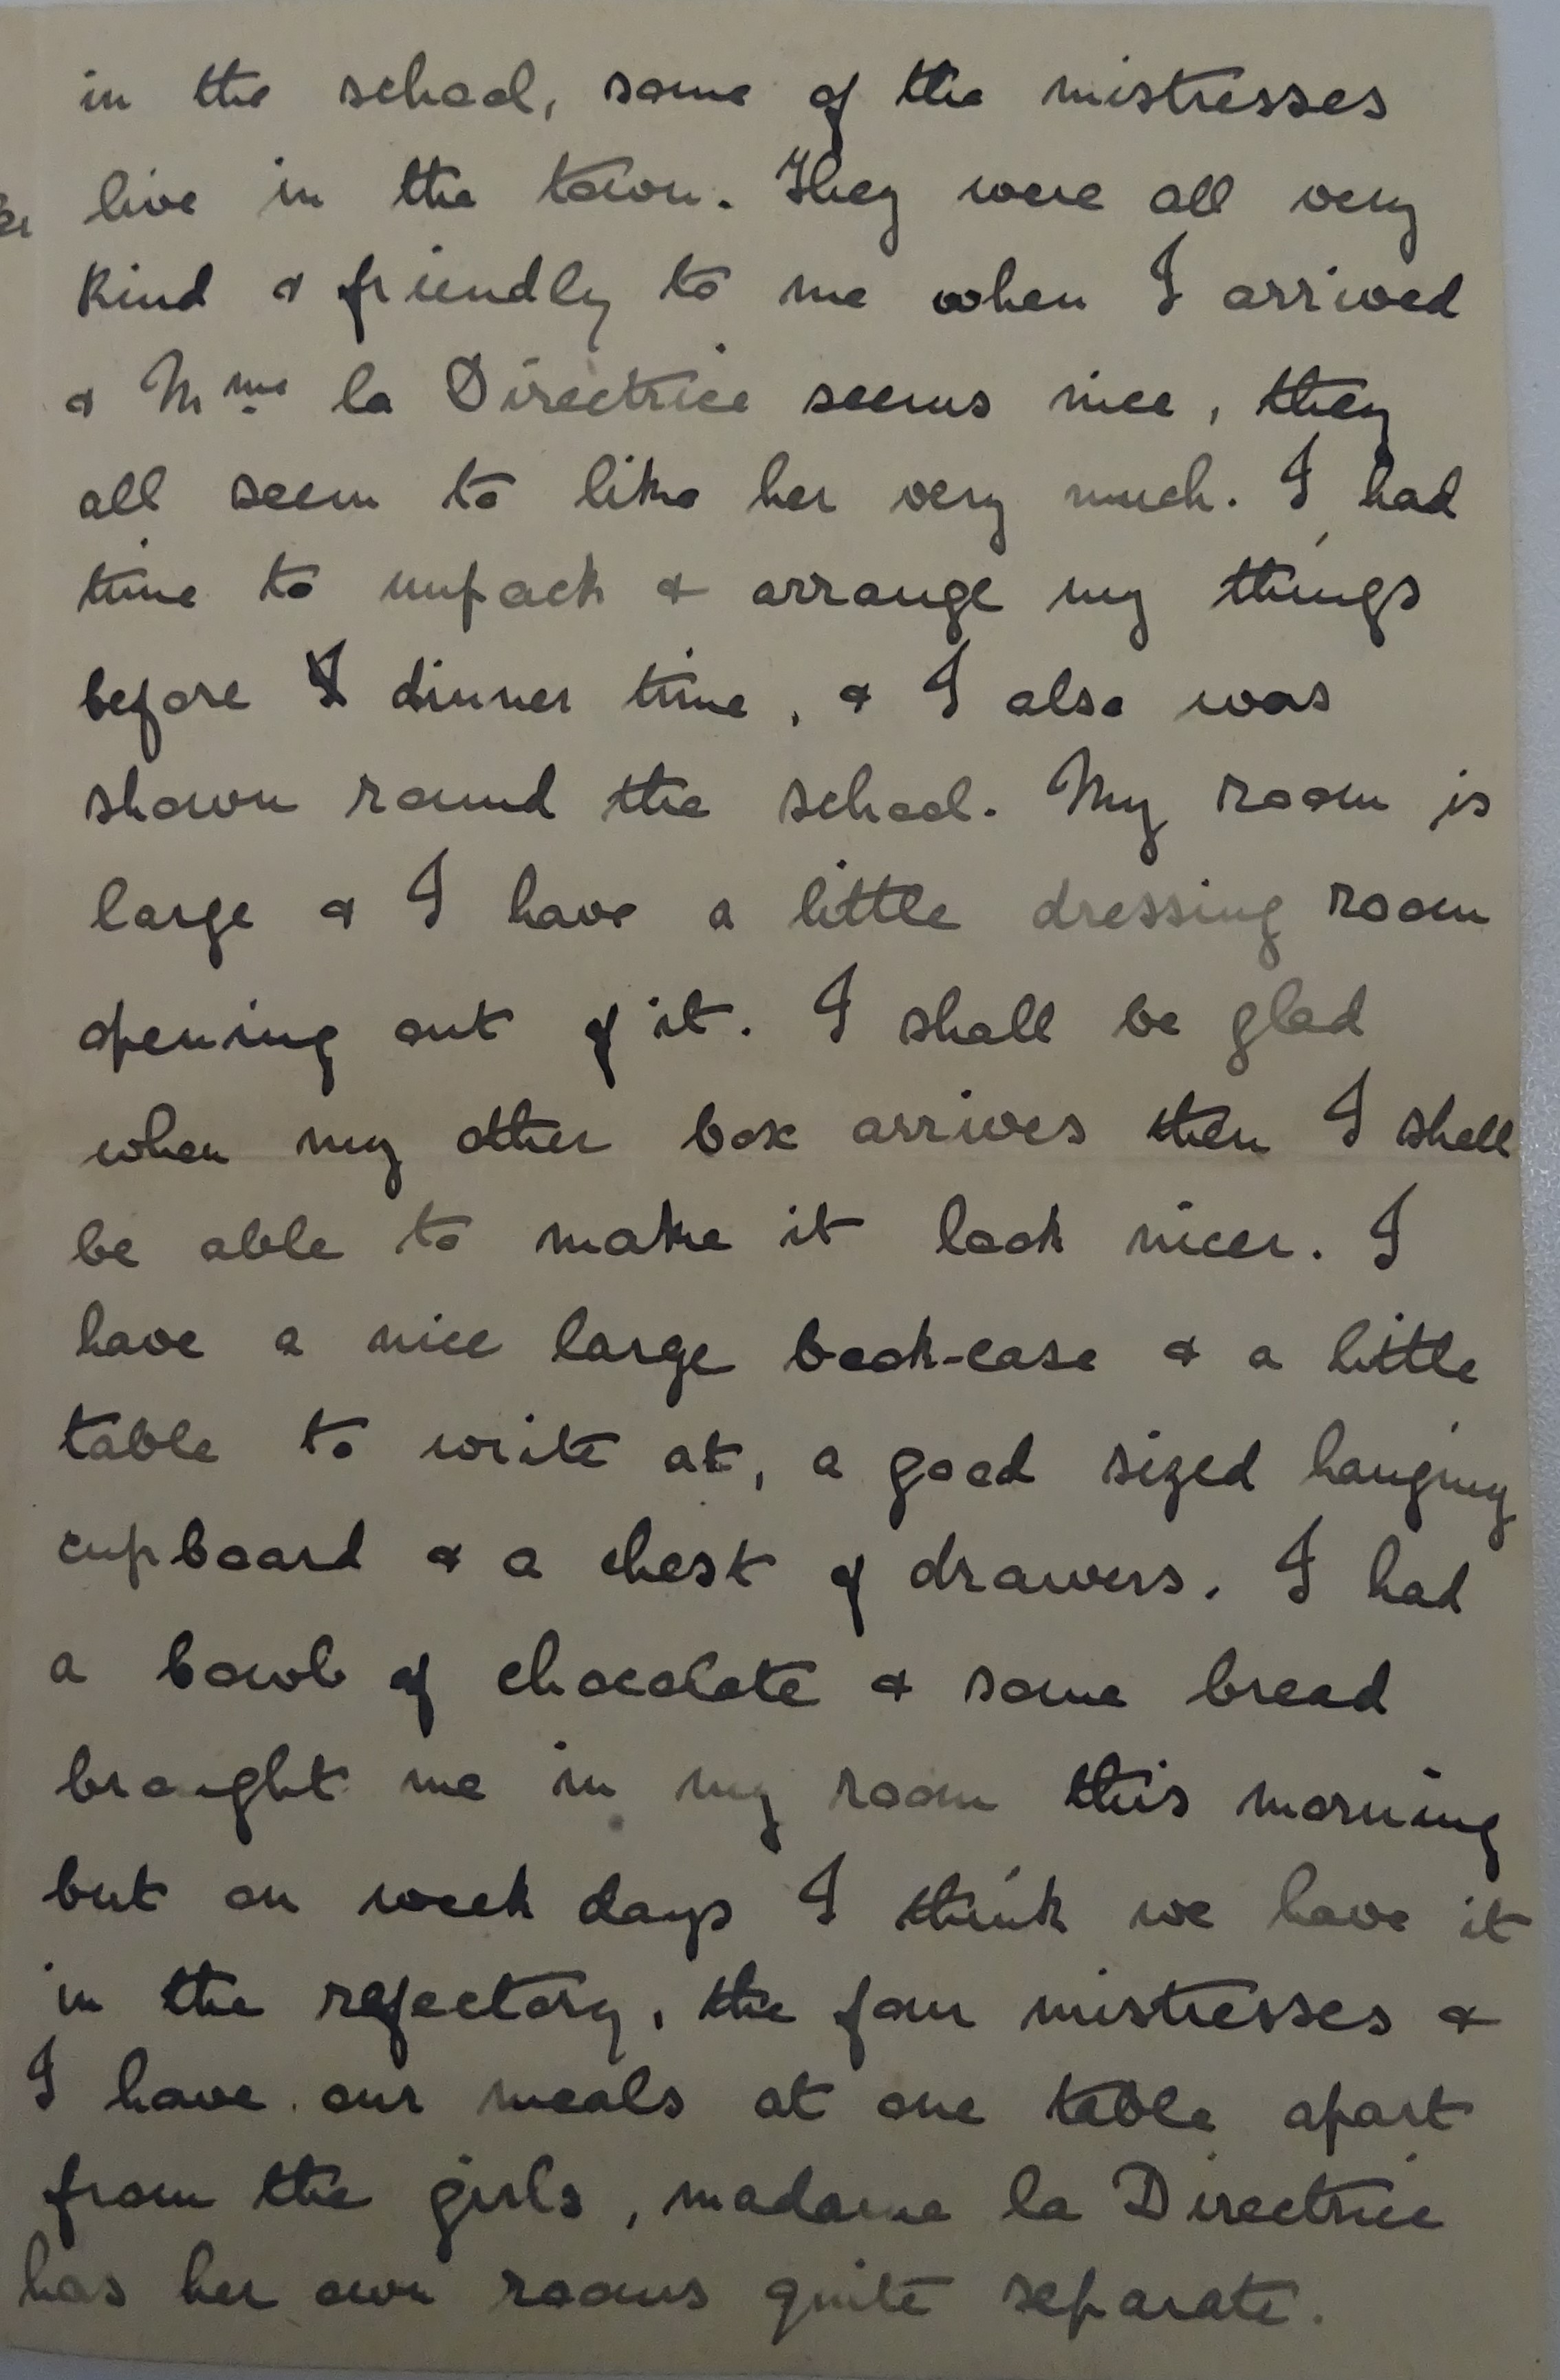 in the school, some of the mistresses
live in the town. They were all very
kind & friendly to me when I arrived
& Mme la Directrice seems nice, they
all seem to like her very much. I had
time to unpack & arrange my things
before dinner time, & I also was
shown round the school. My room is
large & I have a little dressing room
opening out of it. I shall be glad
when my other box arrives then I shall
be able to make it look nicer. I
have a nice large book-case & a little
table to write at, a good sized hanging
cupboard & a chest of drawers. I had
a bowl of chocolate & some bread
brought me in my room this morning
but on week days I think we have it
in the refectory, the four mistresses &
I have our meals at one table apart
from the girls, madame la Directrice
has her own rooms quite separate.